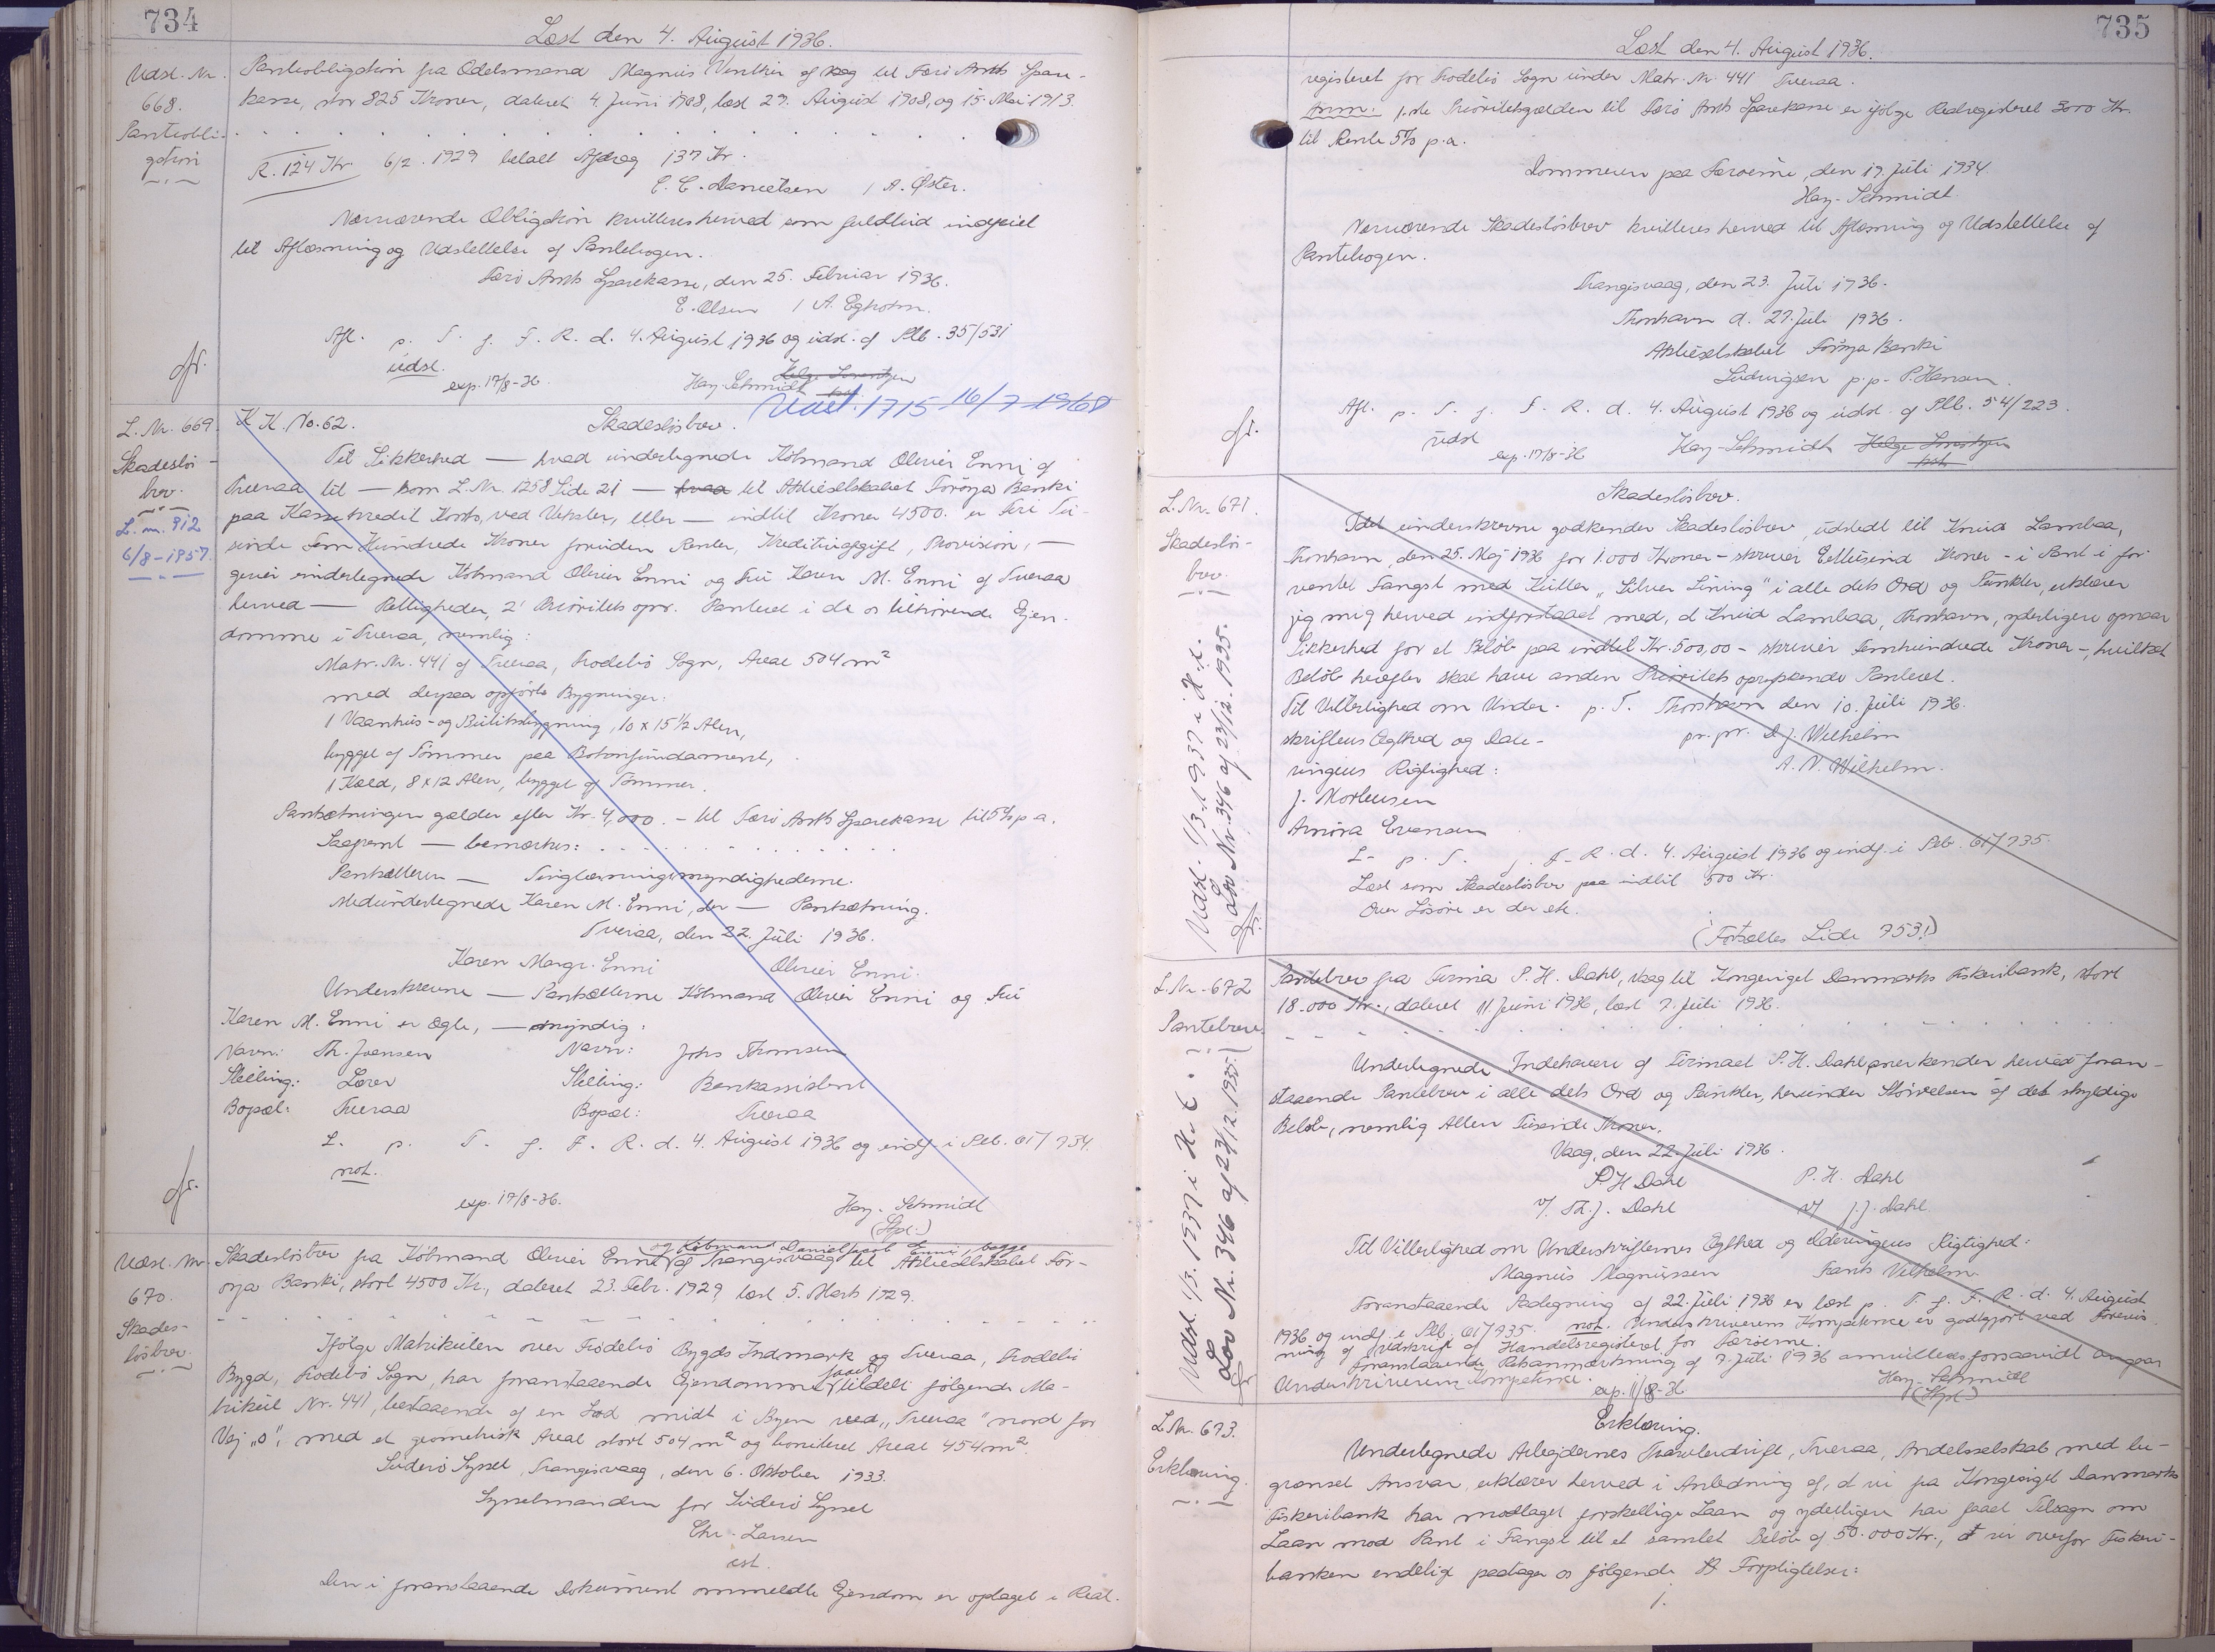 734
Læst den 4. August 1936.
Udsl. Nr.
668.
Pantobli-
gation
Pantobligation fra Odelsmand Magnus Venthin af Vaag til Færø Amts Spare-
kasse, stor 825 Kroner, dateret 4. Juni 1908, læst 29. August 1908, og 15. Mai 1913.
R. 124 Kr 6/2. 1929 betalt Afdrag 137 Kr.
E. C. Danielsen / A. Øster.
Nærværende Obligation kvitteres herved som fuldtud indfriet
til Aflæsning og Udslettelse af Pantebogen.
Færø Amts Sparekasse, den 25. Februar 1936.
E. Olsen / A. Egholm.
Afl. p. T. f. F. R. d. 4. August 1936 og udsl. af Plb. 35/531
udsl.
exp. 17/8-36. Hay-Schmidt Helge Sørentzen
Udsl. 1715 16/7 1968
L. Nr. 669.
Skadesløs-
brev.
L. nr. 912
6/8-1957.
K K. No. 62. Skadesløsbrev.
Til Sikkerhed — hvad undertegnede Købmand Oliver Enni af
Tveraa til — som L. Nr. 1258 Side 21 — hvad til Aktieselskabet Føroya Banki
paa Kassekredit Konto, ved Veksler, eller — indtil Kroner 4500. er Fire Tu-
sinde Fem Hundrede Kroner foruden Renter, Kreditivafgift, Provision, —
giver undertegnede Købmand Oliver Enni og Fru Karen M. Enni af Tveraa
herved — Rettigheder, 2' Prioritets opr. Panteret i de os tilhørende Ejen-
domme i Tveraa, nemlig:
Matr. Nr. 441 af Tveraa, Frodebø Sogn, Areal 504 m²
med derpaa opførte Bygninger:
1 Vaanhus- og Butiksbygning, 10 x 15 ½ Alen,
bygget af Tømmer paa Betonfundament,
1 Kæld, 8 x 12 Alen, bygget af Tømmer.
Pantsætningen gælder efter Kr. 4,000. - til Færø Amts Sparekasse til 5% p a.
Saafremt — bemærkes:
Pantsætteren — Tinglæsningsmyndighederne.
Medundertegnede Karen M. Enni, der — Pantsætning.
Tveraa, den 22. Juli 1936.
Karen Margr. Enni Oliver Enni.
Underskrevne — Pantsætterne Købmand Oliver Enni og Fru
Karen M. Enni er ægte, — myndig:
Navn: Th. Joensen Navn: Johs Thomsen
Stilling: Lærer Stilling: Bankassistent
Bopæl: Tveraa Bopæl: Tveraa
L. p. T. f. F. R. d. 4. August 1936 og indf. i Plb. 61/734.
not.
exp. 17/8-36. Hay-Schmidt
(Stpl.)
Udsl. Nr
670.
Skades-
løsbrev.
og Købmand Daniel Jacob Enni, begge
Skadesløsbrev fra Købmand Oliver Enni af Trangisvaag til Aktieselskabet För-
oya Banki, stort 4500 Kr., dateret 23. Febr. 1929 læst 5. Marts 1929.
Ifølge Matrikulen over Frodebø Bygds Indmark og Tveraa, Frodebø
Bygd, Frodebø Sogn, har foranstaaende Ejendomme faaet tildelt følgende Ma-
trikul Nr. 441, bestaaende af en Lod midt i Byen ved "Tveraa" nord for
Vej "o", med et geometrisk Areal stort 504 m² og boniteret Areal 454 m².
Suderø Syssel, Trangisvaag, den 6. Oktober 1933.
Sysselmanden for Suderø Syssel
Chr. Larsen
cst.
Den i foranstaaende Dokument ommeldte Ejendom er optaget i Real-
735
Læst den 4. August 1936.
registeret for Frodebø Sogn under Matr. Nr. 441 Tveraa.
Anm. 1.ste Prioritetsgælden til Færø Amts Sparekasse er ifølge Realregisteret 3000 Kr.
til Rente 5% p. a.
Dommeren paa Færøerne, den 19. Juli 1934
Hay-Schmidt
Nærværende Skadesløsbrev kvitteres herved til Aflæsning og Udslettelse af
Pantebogen.
Trangisvaag, den 23. Juli 1936.
Thorshavn d. 27. Juli 1936.
Aktieselskabet Føroya Banki
Ludvigsen p.p. P. Hansen.
Afl. p. T. f. F. R. d. 4. August 1936 og udsl. af Plb. 54/223.
udsl
exp. 17/8-36 Hay-Schmidt Helge Sørentzen
L. Nr. 671.
Skadesløs-
brev.
Udsl. 1/3. 1937 i H. t.
Lov Nr. 346 af 23/12. 1935.
Skadesløsbrev.
Idet underskrevne godkender Skadesløsbrev, udstedt til Knud Lambaa,
Thorshavn, den 25. Maj 1936 for 1.000 Kroner - skriver Eettusind Kroner - i Pant i for-
ventet Fangst med Kutter "Silver Lining" i alle dets Ord og Punkter, erklærer
jeg mig herved indforstaaet med, at Knud Lambaa, Thorshavn, yderligere opnaar
Sikkerhed for et Beløb paa indtil Kr. 500,00 - skriver Femhundrede Kroner -, hvilket
Beløb herefter skal have anden Prioritets oprykkende Panteret.
Til Vitterlighed om Under- p. T. Thorshavn den 10. Juli 1936.
skriftens Ægthed og Date- pr. pr. D. J. Wilhelm
ringens Rigtighed: A. N. Wilhelm.
J. Mortensen
Arnóra Evensen
L. p. T. f. F. R. d. 4. August 1936 og indf. i Plb. 61/735.
Læst som Skadesløsbrev paa indtil 500 Kr.
Over Løsøre er der etc.
(Fortsættes Side 753!)
L. Nr. 672
Pantebrev.
Udsl. 1/3. 1937 i H. t.
Lov Nr. 346 af 23/12. 1935.
Pantebrev fra Firma P. H. Dahl, Vaag til Kongeriget Danmarks Fiskeribank, stort
18.000 Kr., dateret 11. Juni 1936, læst 7. Juli 1936.
Undertegnede Indehavere af Firmaet P. H. Dahl anerkender herved foran-
staaende Pantebrev i alle dets Ord og Punkter, herunder Størrelsen af det skyldige
Beløb, nemlig Atten Tusinde Kroner.
Vaag, den 22. Juli 1936.
P. H Dahl P. H. Dahl
v/ Th. J. Dahl v/ J. J. Dahl
Til Vitterlighed om Underskrifternes Ægthed og Dateringens Rigtighed:
Magnus Magnussen Frants Vilhelm
Foranstaaende Paategning af 22. Juli 1936 er læst p. T. f. F. R. d. 4. August
1936 og indf. i Plb. 61/735. not. Underskriverens Kompetence er godtgjort ved Forevis-
ning af Udskrift af Handelsregisteret for Færøerne.
Foranstaaende Retsanmærkning af 7. Juli 1936 annulleres forsaavidt angaar
Underskriverens Kompetence. exp. 11/8-36 Hay-Schmidt
(Stpl)
L. Nr. 673.
Erklæring.
Erklæring.
Undertegnede Arbejdernes Trawlerdrift, Tveraa, Andelsselskab med be-
grænset Ansvar, erklærer herved i Anledning af, at vi fra Kongeriget Danmarks
Fiskeribank har modtaget forskellige Laan og yderligere har faaet Tilsagn om
Laan mod Pant i Fangst til et samlet Beløb af 50.000 Kr., at vi overfor Fiskeri-
banken endelig paatager os følgende Forpligtelser:
1.